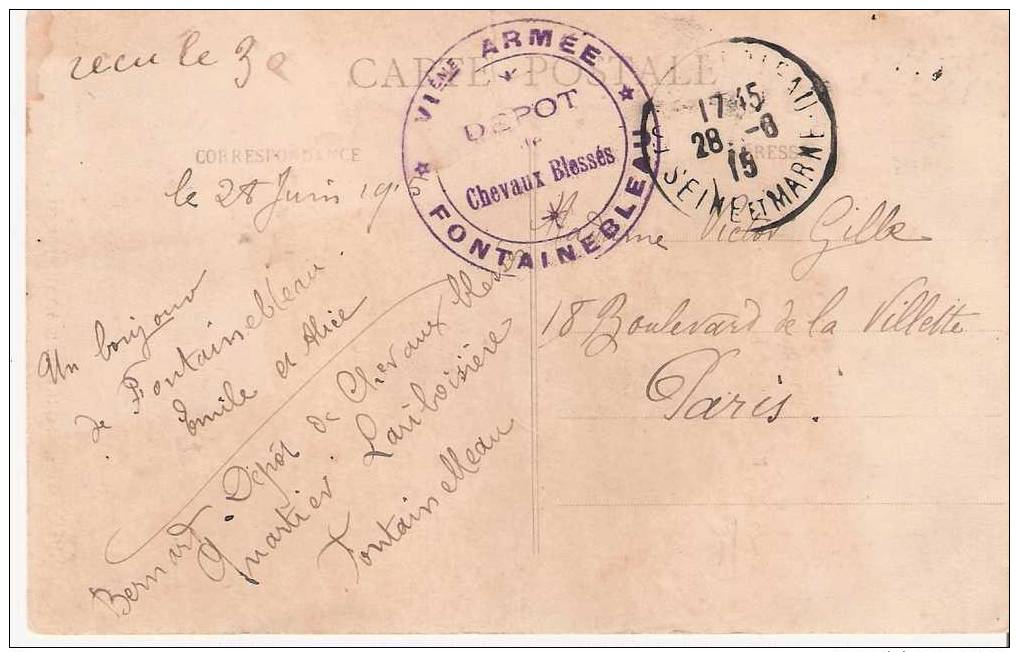 recu le 30
CARTE POSTALE
CORRESPONDANCE
ADRESSE
VIÈME ARMÉE
DÉPOT
de
Chevaux Blessés
FONTAINEBLEAU
17 45
28 - 6
15
SEINE ET MARNE
le 28 Juin 1915
Un bonjour
de Fontainebleau.
Emile et Alice
Bernard. Dépôt de Chevaux blessés
Quartier Lariboisière
Fontainebleau
Madame Victor Gille
18 Boulevard de la Villette
Paris.